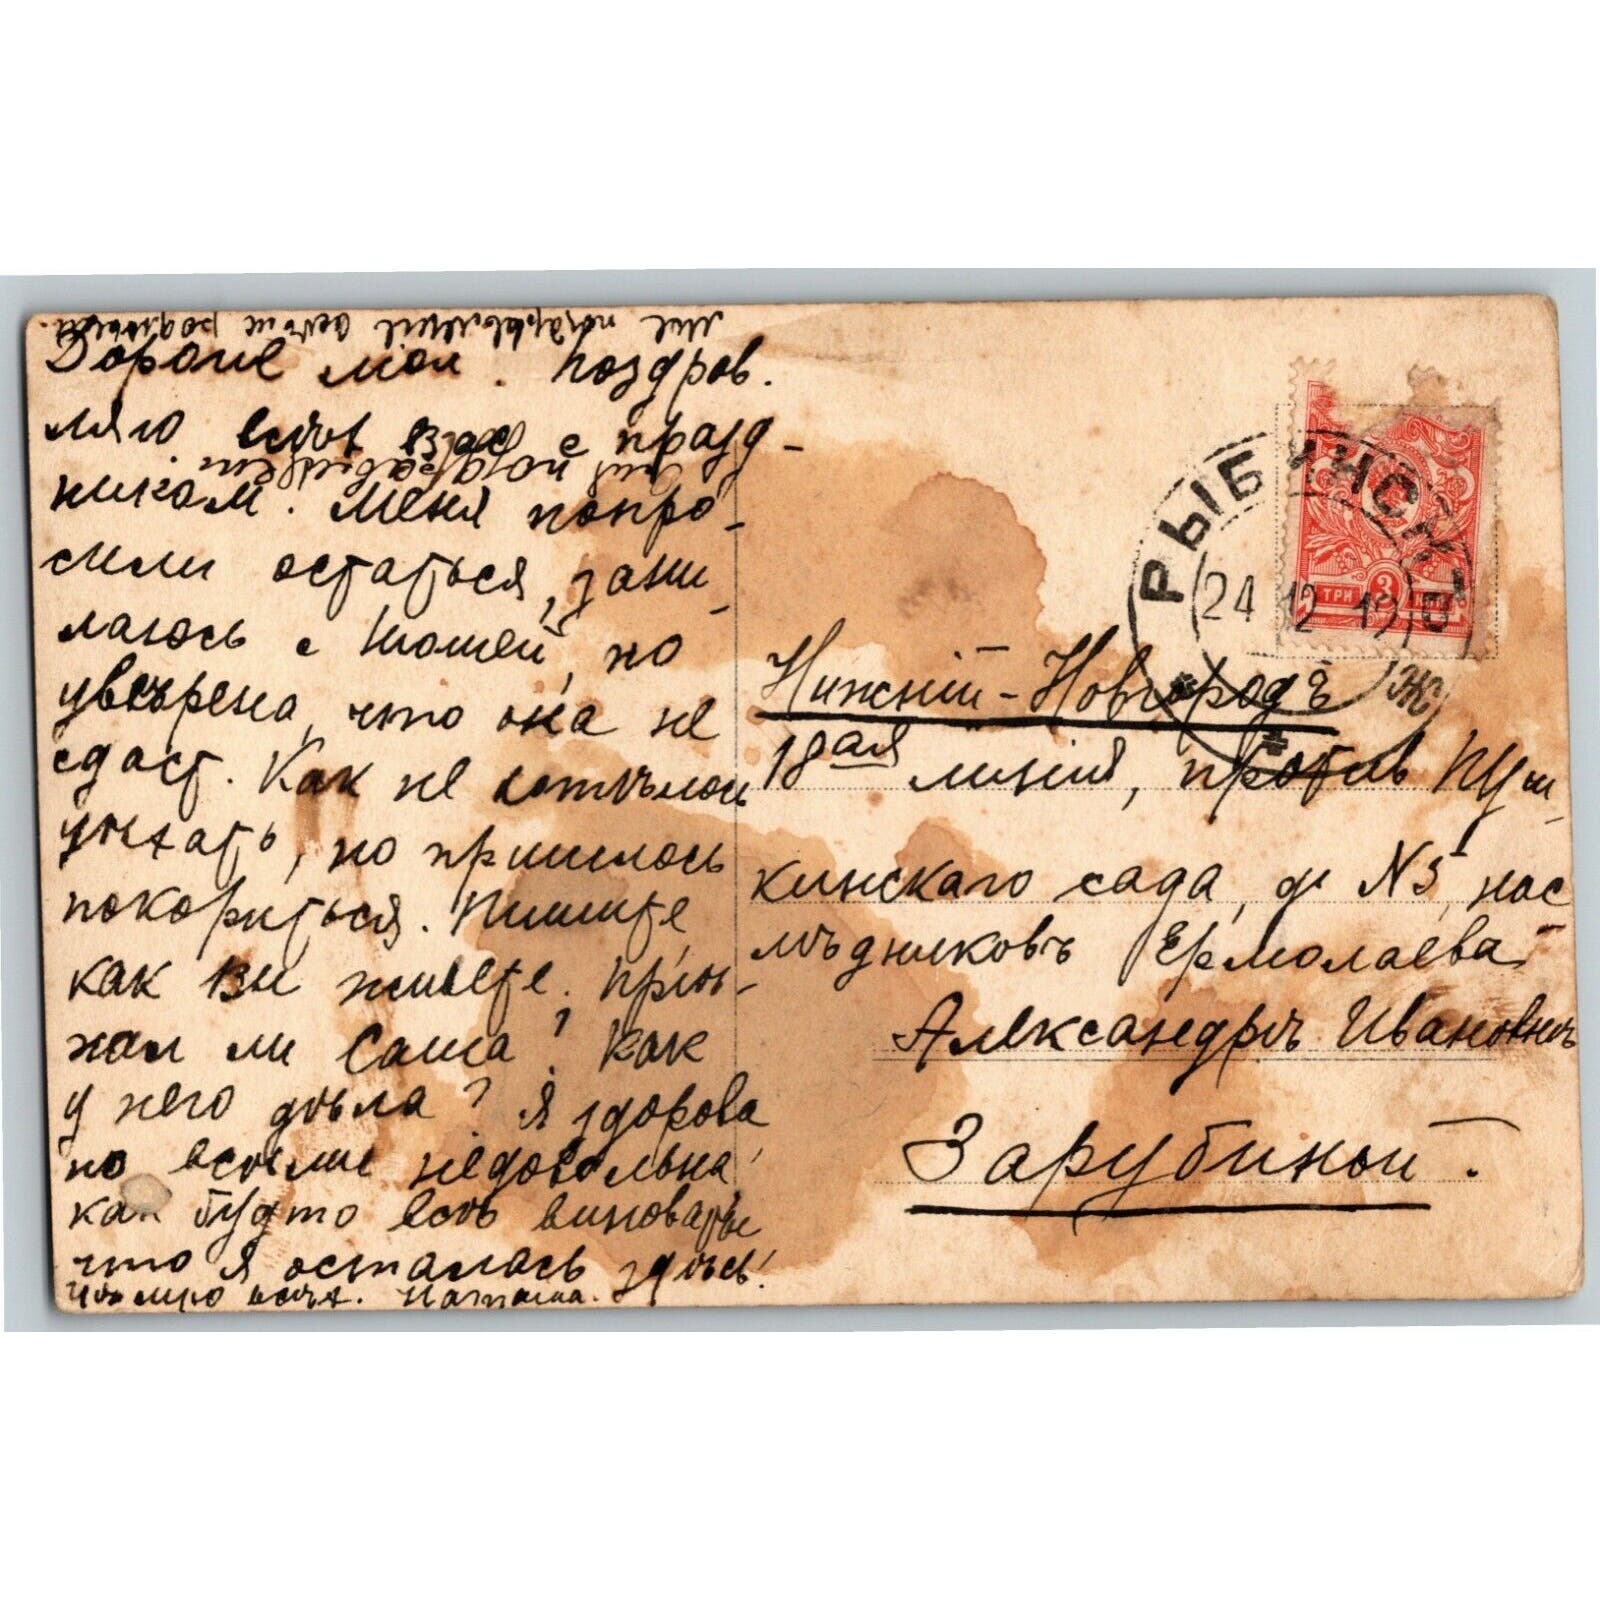 Дорогие мои. Поздров.
ляю всѣхъ Вас с празд-
ником. Меня попро-
сили остаться, зани-
лаюсь с Тошей, но
увѣрена, что она не
сдаст. Как не хотѣлось
уѣхать, но пришлось
покориться. Пишите,
как Вы живете. Пріѣ-
хал ли Саша? Как
у него дѣла? Я здорова
но всѣми недовольна,
как будто всѣ виноваты
что я осталась здѣсь!
Цѣлую всѣх. Наташа.
РЫБИНСКЪ
24 12
ТРИ 3 КОП
Ж
Нижній-Новгородъ
18ая линія, против Пуш-
кинскаго сада, д. N5, нас
лѣдниковъ Ермолаева
Александрѣ Ивановнѣ
Зарубиной.